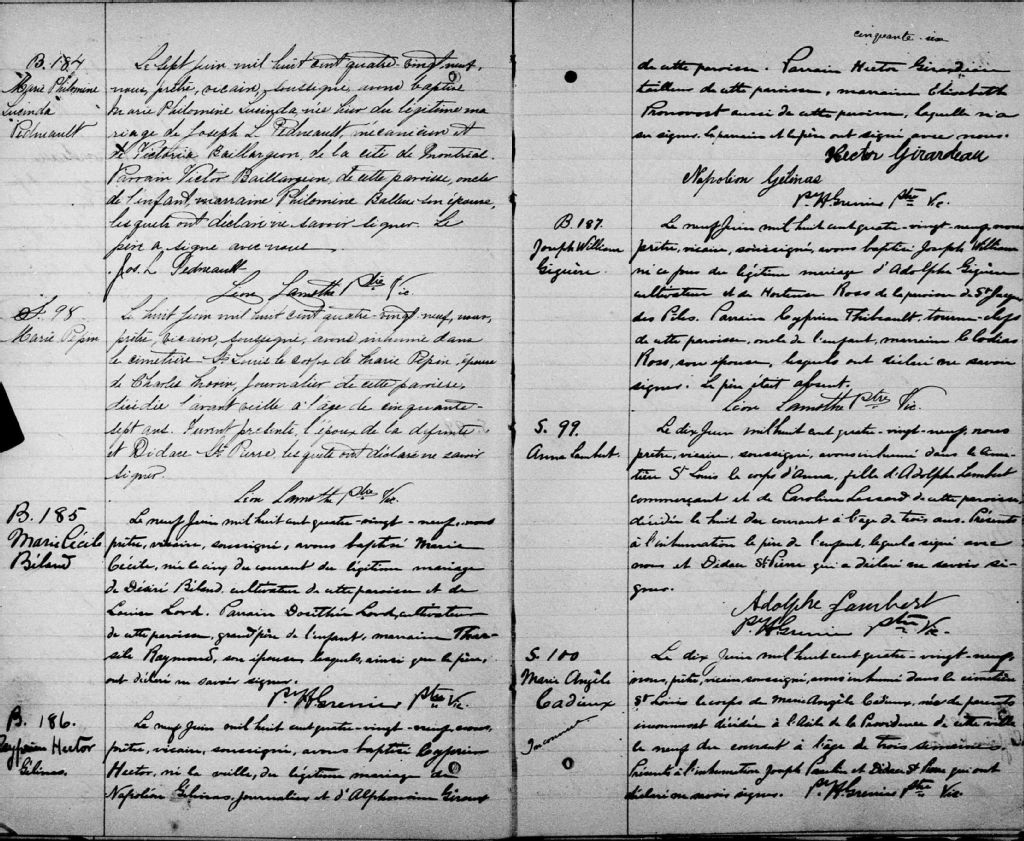 B. 184
Marie Philomine
Lucinda
Pedneault
Le sept juin mil huit cent quatre-vingt neuf,
nous, prêtre, vicaire, soussigné, avons baptisé
Marie Philomine Lucinda, née hier du légitime ma
riage de Joseph L Pedneault, mécanicien et
de Victoria Baillargeon, de la cité de Montréal.
Parrain Victor Baillargeon, de cette paroisse, oncle
de l'enfant, marraine Philomine son épouse,
lesquels ont déclaré ne savoir signer. Le
père a signé avec nous
Jos. L Pedneault
Léon Lamothe Ptre Vic
S. 98
Marie Pepin
Le huit juin mil huit cent quatre-vingt neuf, nous,
prêtre, vicaire, soussigné, avons inhumé dans
le cimetière St Louis le corps de Marie Pépin, épouse
de Charles journalier de cette paroisse,
décédée l'avant veille à l'âge de cinquante-
sept ans. Furent présents, l'époux de la défunte
et Didace St Pierre, lesquels ont déclaré ne savoir
signer.
Léon Lamothe Ptre Vic.
B. 185
Marie Cécile
Béland
Le neuf Juin mil huit cent quatre-vingt-neuf, nous
prêtre, vicaire, soussigné, avons baptisé Marie
Cécile, née le cinq du courant du légitime mariage
de Désiré Béland, cultivateur de cette paroisse et de
Louise Lord. Parrain Dosithée Lord, cultivateur
de cette paroisse, grand'père de l'enfant, marraine Thar-
sile Raymond, son épouse lesquels, ainsi que le père,
ont déclaré ne savoir signer.
P. H Grenier Ptre Vic.
B. 186.
Hector
Gélinas.
Le neuf Juin mil huit cent quatre-vingt-neuf, nous,
prêtre, vicaire, soussigné, avons baptisé Cyprien
Hector, né la veille, du légitime mariage de
Napoléon Gélinas, journalier et d'Alphonsine Giroux
cinquante six
de cette paroisse. Parrain Hector Girardeau
tailleur de cette paroisse, marraine Elizabeth
Pronovost aussi de cette paroisse, laquelle n'a
su signer. Le parrain et le père ont signé avec nous.
Hector Girardeau
Napoléon Gélinas
P. H Grenier Ptre Vic.
B. 187.
Joseph William
Giguère.
Le neuf Juin mil huit cent quatre-vingt-neuf, nous
prêtre, vicaire, soussigné, avons baptisé Joseph William
né ce jour du légitime mariage d'Adolphe Giguère
cultivateur et de Hortense Ross de la paroisse de St Jacques
des Piles. Parrain Cyprien Thibault, tourne-clefs
de cette paroisse, oncle de l'enfant, marraine Clodia
Ross, son épouse, lesquels ont déclaré ne savoir
signer. Le père était absent.
Léon Lamothe Ptre Vic.
S. 99.
Anna Lambert.
Le dix Juin mil huit cent quatre-vingt-neuf, nous
prêtre, vicaire, soussigné, avons inhumé dans le cime-
tière St Louis le corps d'Anna, fille d'Adolphe Lambert
commerçant et de Caroline Lessard de cette paroisse,
décédée le huit du courant à l'âge de trois ans. Présents
à l'inhumation le père de l'enfant, lequel a signé avec
nous et Didace St Pierre qui a déclaré ne savoir si-
gner.
Adolphe Lambert
P. H Grenier Ptre Vic.
S. 100
Marie Angèle
Cadieux
Inconnu
Le dix Juin mil huit cent quatre-vingt-neuf
nous, prêtre, vicaire, soussigné, avons inhumé dans le cimetière
St Louis le corps de Marie Angèle Cadieux, née de parents
inconnus et décédée à l'Asile de la Providence de cette ville
le neuf du courant à l'âge de trois semaines.
Présents à l'inhumation Joseph et Didace St Pierre qui ont
déclaré ne savoir signer. P. H Grenier Ptre Vic.